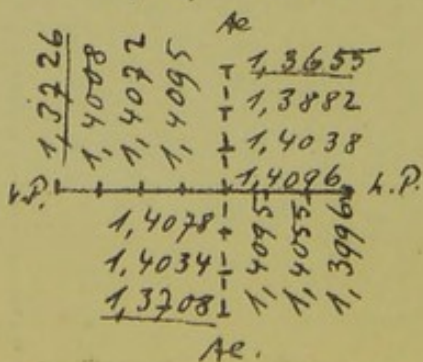 Ae
1,3726
1,4008
1,4072
1,4095
1,3655
1,3882
1,4038
1,4096
v.P.
h.P.
1,4078
1,4034
1,3708
1,4095
1,4055
1,3996
Ae.